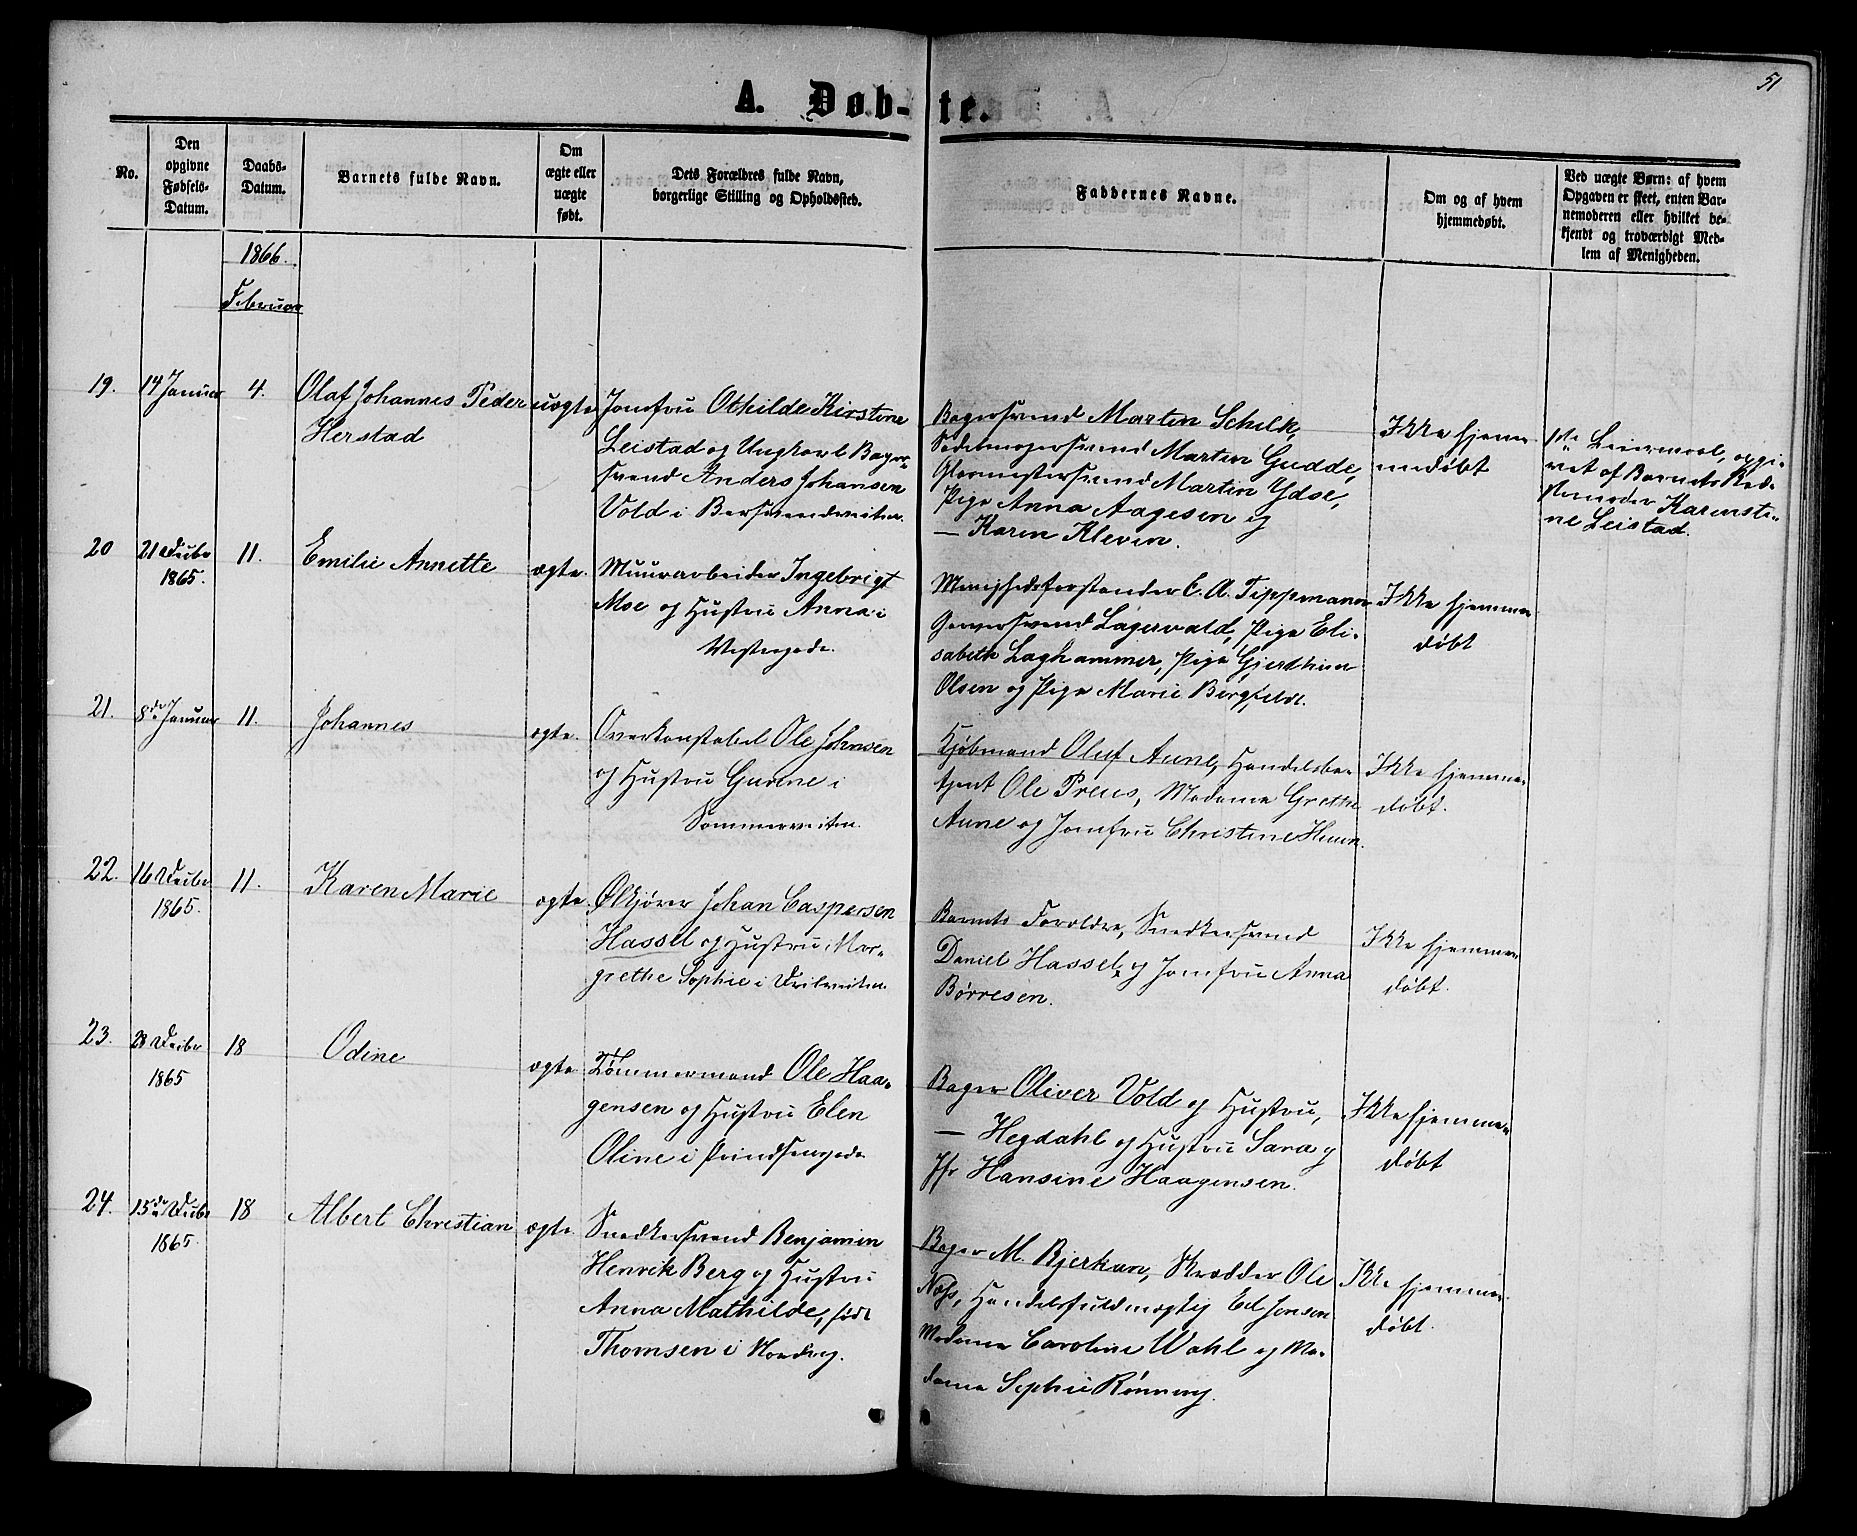 51
A. Døb-te.
No.
Den
opgivne
Fødsels-
Datum.
Daabs-
Datum.
Barnets fulde Navn.
Om
ægte eller
uægte
født.
Dets Forældres fulde Navn,
borgerlige Stilling og Opholdssted.
Faddernes Navne.
Om og af hvem
hjemmedøbt.
Ved uægte Børn: af hvem
Opgaven er skeet, enten Bar-
nemoderen eller hvilket be-
kjendt og troværdigt Med-
lem af Menigheden.
1866.
Februar
19.
14 Januar
4.
Olaf Johannes Peder
Herstad
uægte
Jomfru Othilde Kirstine
Leistad og Ungkarl Bager-
svend Anders Johansen
Vold i Bersvendveiten.
Bagersvend Martin Schilk,
Sadelmagersvend Martin Gudde,
Glasmestersvend Martin Ydse,
Pige Anna Aagesen og
— Karen Kleven.
Ikke hjem-
medøbt
1ste Leiermaal, opgi-
vet af Barnets
Karensti-
ne Leistad.
20
21 Decbr
1865.
11.
Emilie Annette
ægte.
Muurarbeider Ingebrigt
Moe og Hustru Anna i
Vestergade.
Menighedsforstander C. A. Tippmann
Garversvend Lagervald, Pige Eli-
sabeth Laghammer, Pige Gjerthine
Olsen og Pige Marie Bergfeldt.
Ikke hjemme
døbt
21.
8de Januar
11.
Johannes
ægte.
Overkonstabel Ole Johnsen
og Hustru Gunne i
Sommerveiten.
Kjøbmand Oluf Aune, Handelsbe-
tjent Ole Preus, Madame Grethe
Aune og Jomfru Christine Huun.
Ikke hjemme-
døbt.
22.
16 Decbr
1865.
11.
Karen Marie
ægte.
Ølkjører Johan Caspersen
Hassel og Hustru Mar-
grethe Sophie i
Barnets Forældre, Snedkersvend
Daniel Hassel og Jomfru Anna
Børresen.
Ikke hjemme-
døbt.
23.
28 Decbr
1865
18
Odine
ægte
Tømmermand Ole Haa-
gensen og Hustru Elen
Oline i Prindsensgade
Bager Oliver Vold og Hustru,
— Hegdahl og Hustru Sara og
Jfr Hansine Haagensen.
Ikke hjemme-
døbt
24.
15de Decbr
1865.
18
Albert Christian
ægte.
Snedkersvend Benjamin
Henrik Berg og Hustru
Anna Mathilde, født
Thomsen i Nordveg.
Bager M. Bjerkan, Skrædder Ole
Næss, Handelsfuldmægtig Ed Jensen
Madame Caroline Wahl og Ma-
dame Sophie Rønning.
Ikke hjemme-
døbt.